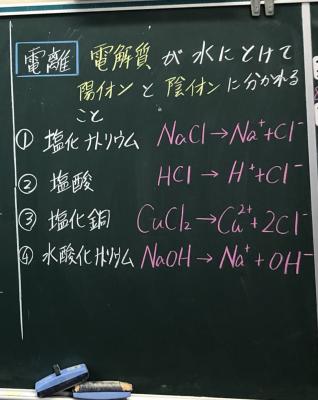 電離 電解質が水にとけて
陽イオンと陰イオンに分かれる
こと
① 塩化ナトリウム NaCl→Na⁺+Cl⁻
② 塩酸 HCl→H⁺+Cl⁻
③ 塩化銅 CuCl₂→Cu²⁺+2Cl⁻
④ 水酸化ナトリウム NaOH→Na⁺+OH⁻